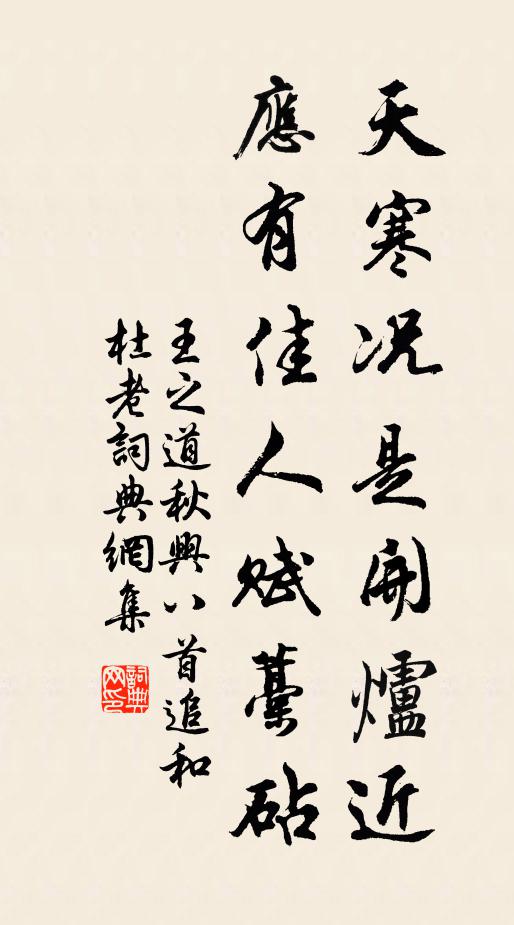 天寒況是開爐近
應有佳人賦藁砧
王之道秋興八首追和
杜老詞典網集
詞典網印